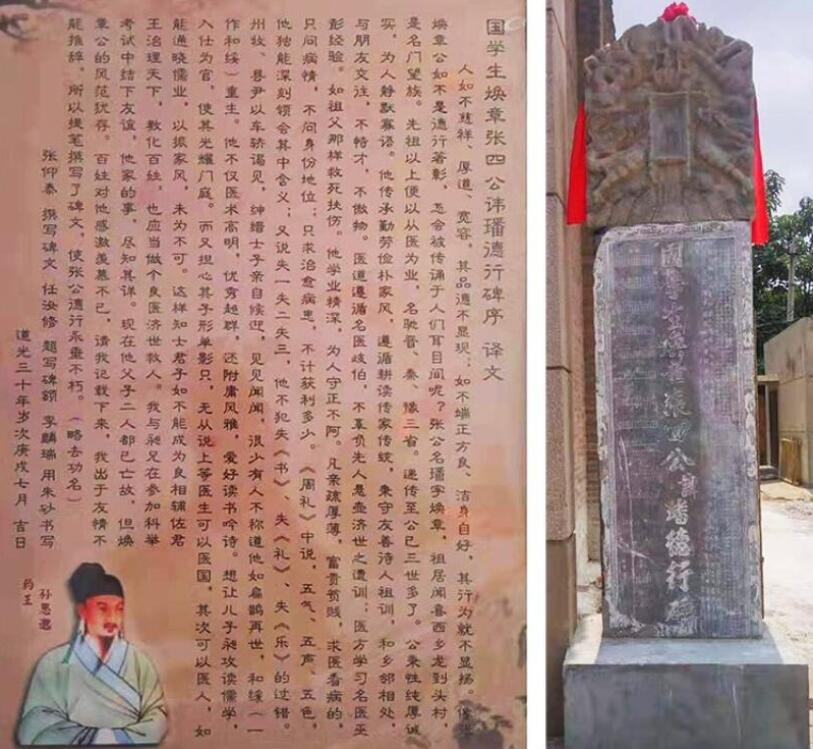 国学生焕章张四公讳璠德行碑序 译文
人如不慈祥、厚道、宽容，其品德不显现；如不端正方良、洁身自好，其行为就不显扬。像
焕章公如不是德行若彰，怎会被传诵于人们耳目间呢？张公名璠字焕章，祖居闻喜西乡龙到头村，
是名门望族。先祖以上便以从医为业，名驰晋、秦、豫三省。递传至公已三世多了。公秉性纯厚诚
实，为人静默寡语。他传承勤劳俭朴家风，遵循耕读传家传统，秉守友善诗人祖训，和乡邻相处，
与朋友交往，不恃才，不傲物。医道遵循名医岐伯，不辜负先人悬壶济世之遗训；医方学习名医巫
彭经验。如祖父那样救死扶伤。他学业精深，为人守正不阿。凡亲疏厚薄，富贵贫贱，求医看病的，
只问病情，不问身份地位；只求治愈病患，不计获利多少。《周礼》中说，五气、五声、五色，
他独能深刻领会其中含义；又说失一失二失三，他不犯失《书》、失《礼》、失《乐》的过错。
州牧、县尹以车轿谒见，绅缙士子亲自候迎，见见闻闻，很少有人不称道他如扁鹊再世，和缓（一
作和绥）重生。他不仅医术高明，优秀超群，还附庸风雅，爱好读书吟诗。想让儿子昶攻读儒学，
入仕为官，使其光耀门庭。而又担心其子形单影只，无从说上等医生可以医国，其次可以医人，如
能通晓儒业，以振家风，未为不可。这样知士君子如不能成为良相辅佐君
王治理天下，教化百姓，也应当做个良医济世救人。我与昶兄在参加科举
考试中结下友谊，他家的事，尽知其详。现在他父子二人都已亡故，但焕
章公的风范犹存。百姓对他感激羡慕不已，请我记载下来，我出于友情不
能推辞。所以提笔撰写了碑文，使张公德行永垂不朽。（略去功名）
张仰泰 撰写碑文 任汝修 题写碑额 李麟瑞 用朱砂书写
道光三十年岁次庚戌七月 吉日
孙思邈
药王
國學生煥章張四公諱璠德行碑